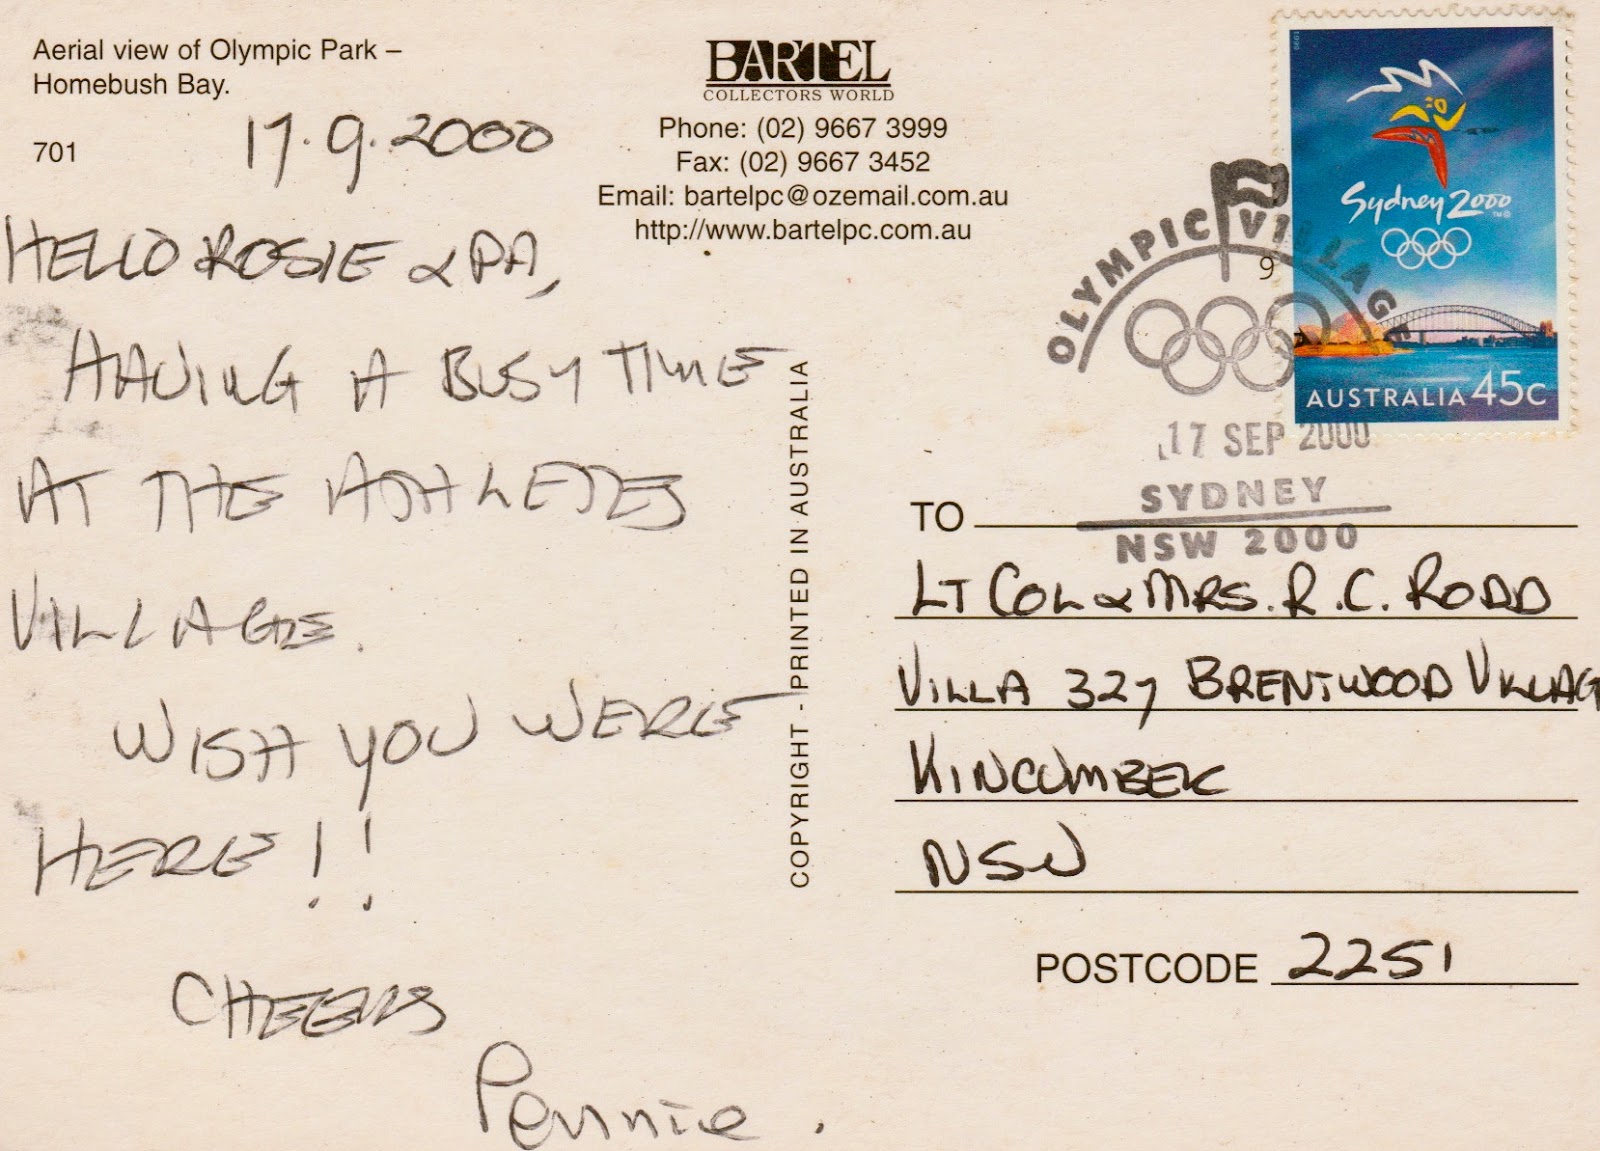 Aerial view of Olympic Park –
Homebush Bay.
701
17.9.2000
HELLO ROSIE & PA,
HAVING A BUSY TIME
AT THE ATHLETES
VILLAGE.
WISH YOU WERE
HERE!!
CHEERS
Pennie.
BARTEL
COLLECTORS WORLD
Phone: (02) 9667 3999
Fax: (02) 9667 3452
Email: bartelpc@ozemail.com.au
http://www.bartelpc.com.au
COPYRIGHT - PRINTED IN AUSTRALIA
OLYMPIC VILLAGE
9
17 SEP 2000
SYDNEY
NSW 2000
1999
Sydney 2000
TM ©
AUSTRALIA 45c
TO
LT COL & MRS. R.C. RODD
VILLA 327 BRENTWOOD VILLAG
KINCUMBER
NSW
POSTCODE 2251